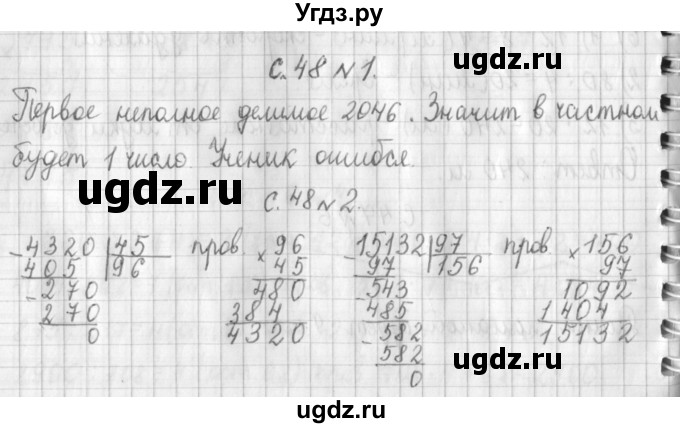 Угдз.ру
с. 48 №1.
Первое неполное делимое 2046. Значит в частном
будет 1 число. Ученик ошибся.
ugdz.ru
ugdz.ru
ugdz.ru
с. 48 №2.
- 4320 | 45
405 | 96
- 270
270
0
пров. × 96
45
480
384
4320
- 15132 | 97
97 | 156
- 543
485
- 582
582
0
пров. × 156
97
1092
1404
15132
ugdz.ru
ugdz.ru
ugdz.ru